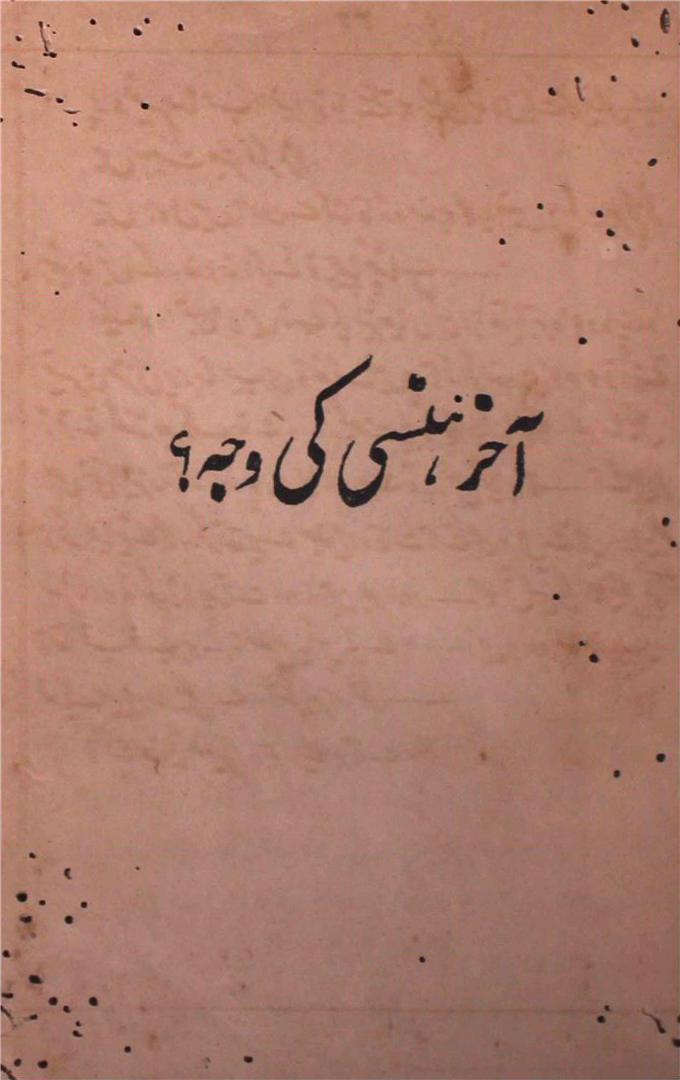 آخر ہنسی کی وجہ؟